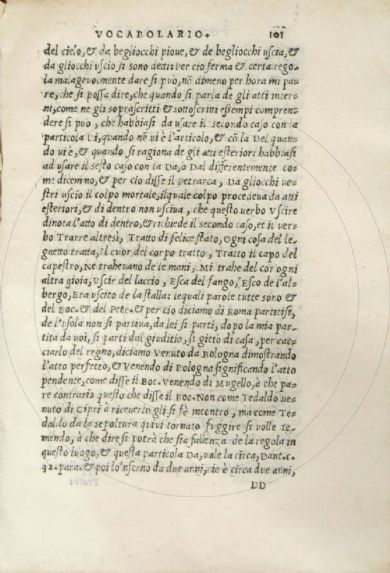 VOCABOLARIO. 101
del cielo, & da begliocchi pioue, & de begliocchi uscia, &
da gliocchi uscio si sono detti: per cio ferma & certa rego-
la malageuolmente dare si puo, nõ dimeno per hora mi pa-
re, che si possa dire, che quando si parla de gli atti inter-
ni, come ne gli soprascritti & sottoscritti essempi compren-
dere si puo, che habbiasi da usare il secondo caso con la
particola Di, quando nõ ui è l'articolo, & cõ la Del quan-
do ui è, & quando si ragiona de gli atti esteriori habbiasi
ad usare il sesto caso con la Da, o Dal differentemente co-
me dicemino, & per cio disse il Petrarca, Da gliocchi ue-
stri uscio il colpo mortale, il quale colpo procedeua da atti
esteriori, & di dentro non usciua, che questo uerbo Vscire
dinota l'atto di dentro, & richiede il secondo caso, et il uer-
bo Trarre altresi, Tratto di felice stato, Ogni cosa del le-
gnetto tratta, Il cuor del corpo tratto, Tratto il capo del
capestro, Ne traheuano de le mani, Mi trahe del cor ogni
altra gioia, Vscir del laccio, Esca del fango, Esco de l'al-
bergo, Era uscito de la stalla: lequali parole tutte sono &
del Boc. & del Petr. & per cio diciamo di Roma partirsi,
de l'Isola non si partiua, da lei si parti, dopo la mia par-
tita da uoi, si parti dal giuditio, si gitto di casa, per cac-
ciarlo del regno, diciamo Venuto da Bologna dimostrando
l'atto perfetto, & Venendo di Bologna significando l'atto
pendente, come disse il Boc. Venendo di Mugello, à che pa-
re contrario questo che disse il Boc. Non come Tedaldo ue-
nuto di Cipri à riceuerli gli si fè incontro, ma come Te-
daldo da la sepoltura quiui tornato fuggire si uolle te-
mendo, à che dire si potrà che sia fallenza de la regola in
questo luogo, & questa particola Da, uale la circa, Dant. c.
32. para. & poi lo'nferno da due anni, cio è circa due anni,
DD